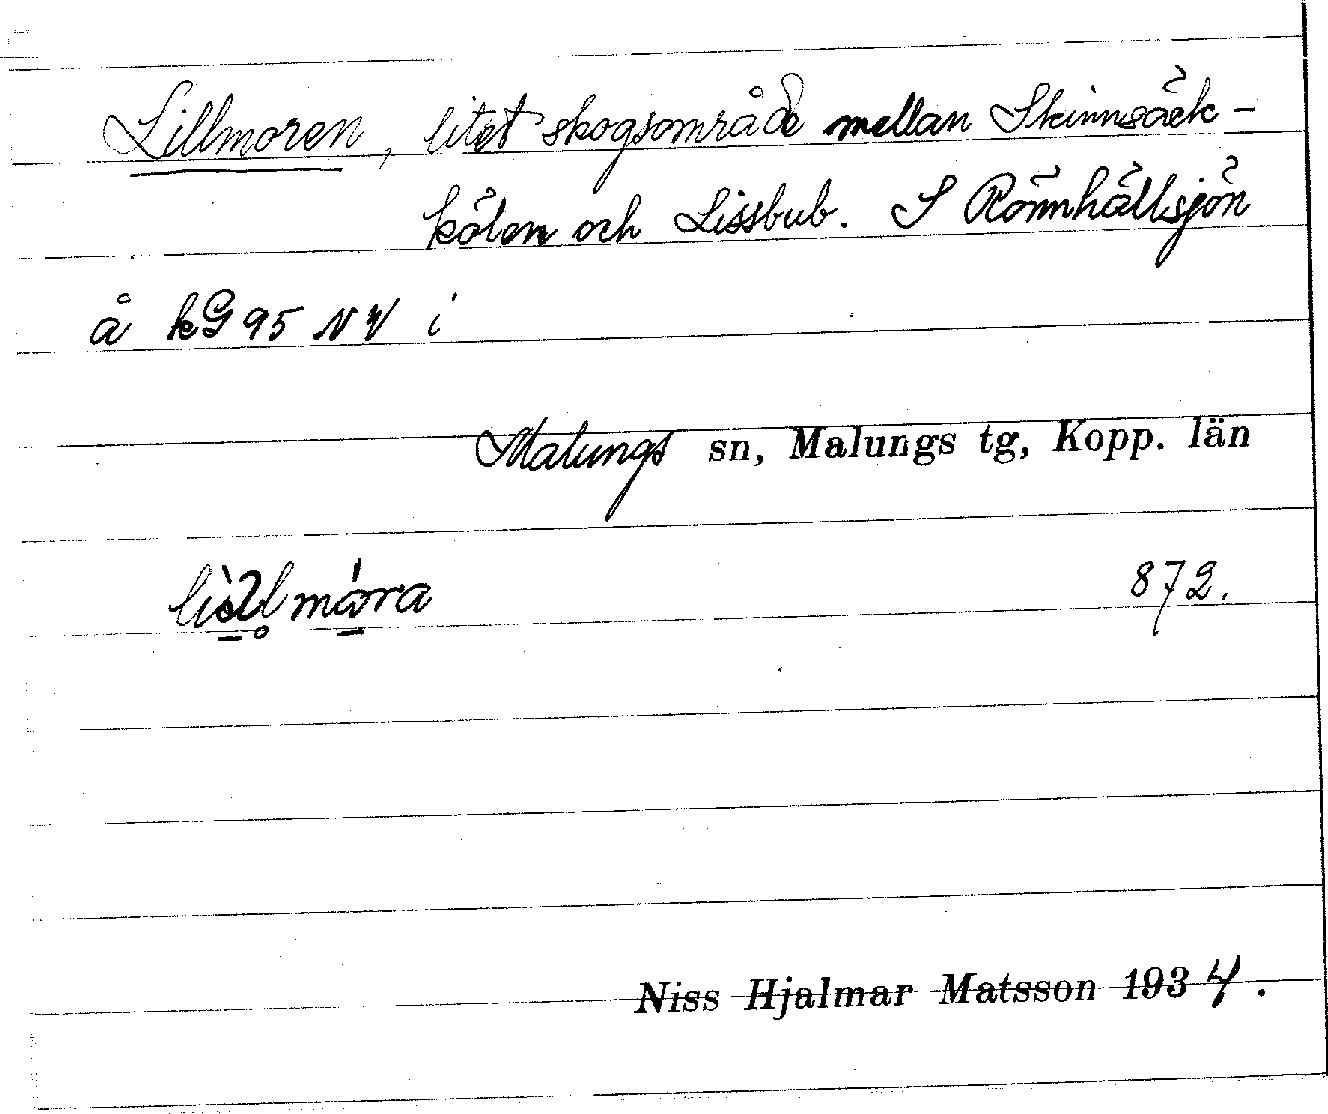 Lillmoren, litet skogsområde mellan Skinnsäck-
kölen och Lissbub. S Rönnhällsjön
å kG 95 NV i
Malungs sn, Malungs tg, Kopp. län
872.
Niss Hjalmar Matsson 1934.